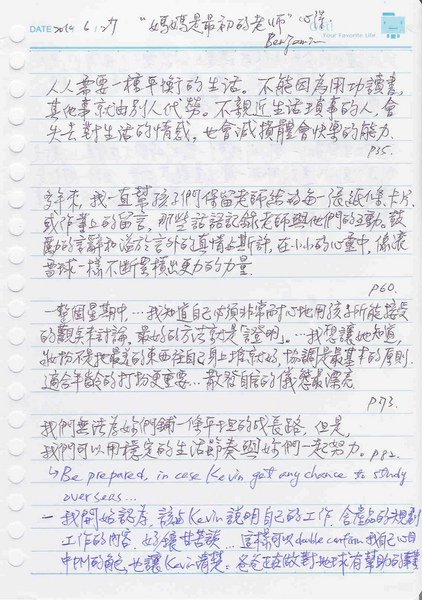 DATE 2014 6/27 "媽媽是最初的老師" 心得
Benjamin
Your Favorite Life
人人需要一種平衡的生活。不能因為用功讀書,
其他事就由別人代勞。不親近生活瑣事的人,會
失去對生活的情感,也會減損體會快樂的能力.
P35.
多年來,我一直幫孩子們保留老師給的每一張紙條.卡片.
或作業上的留言,那些話語記錄老師與他們的互動。鼓
勵的言辭和溢於言外的真情與期許,在小小的心靈中,像滾
雪球一樣不斷累積出更大的力量.
P60.
一整個星期中,…我知道自己必須非常耐心地用孩子所能接受
的觀點來討論,最好的方法就是「證明」。…我想讓她知道,
妝扮不是把最美的東西往自己身上堆就好,協調是最基本的原則.
適合年齡的打扮更重要…散發自信的儀態最漂亮
P73.
我們無法為妳們鋪一條平坦的成長路,但是,
我們可以用穩定的生活節奏與妳們一起努力. P82.
↳ Be prepared, in case Kevin get any chance to study
overseas...
— 我開始認為,該與Kevin說明自己的工作,含產品的規劃
工作的內容,好壞甘苦談…這樣可以double confirm我自己心目
中PM的角色,也讓Kevin清楚:爸爸正在做對地球有幫助的事業